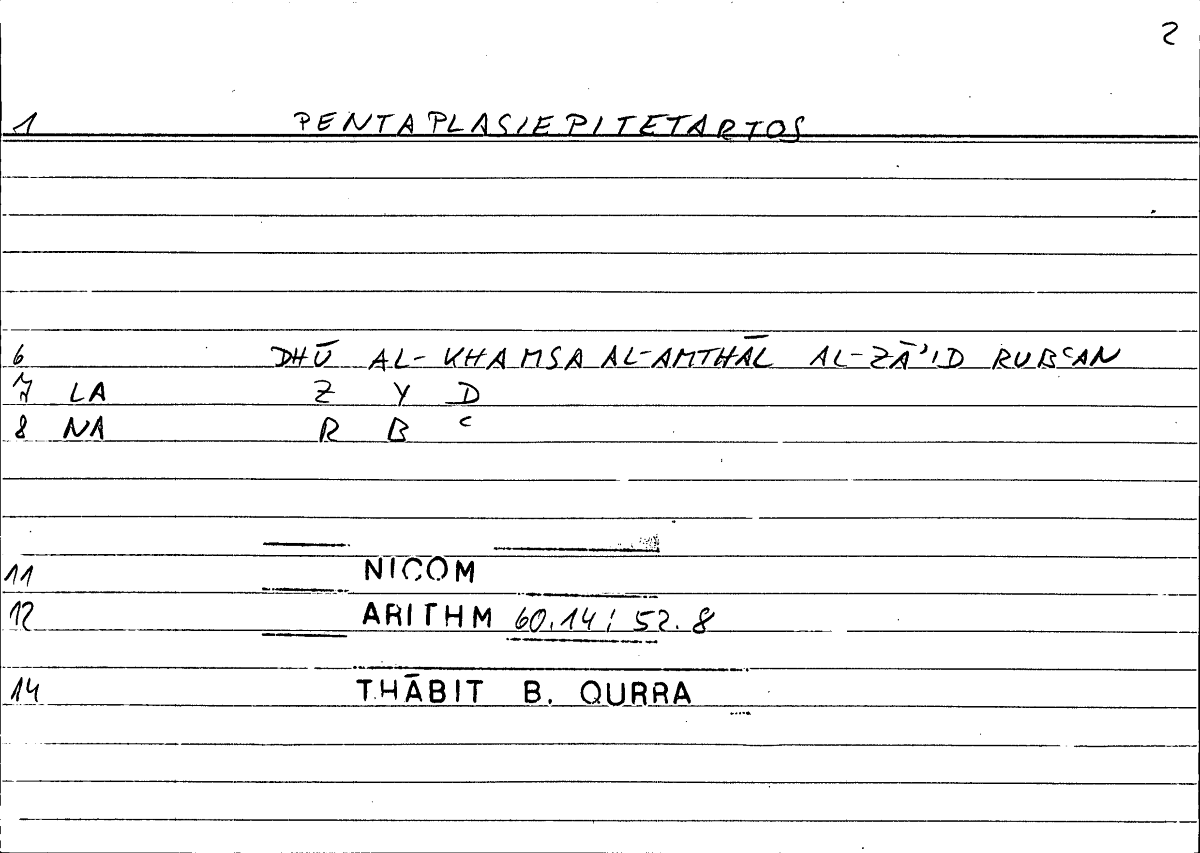 2
1 PENTAPLASIEPITETARTOS
6 DHŪ AL-KHAMSA AL-AMTHĀL AL-ZĀʾID RUBʿAN
7 LA Z Y D
8 NA R B ʿ
11 NICOM
12 ARITHM 60.14; 52.8
14 THĀBIT B. QURRA